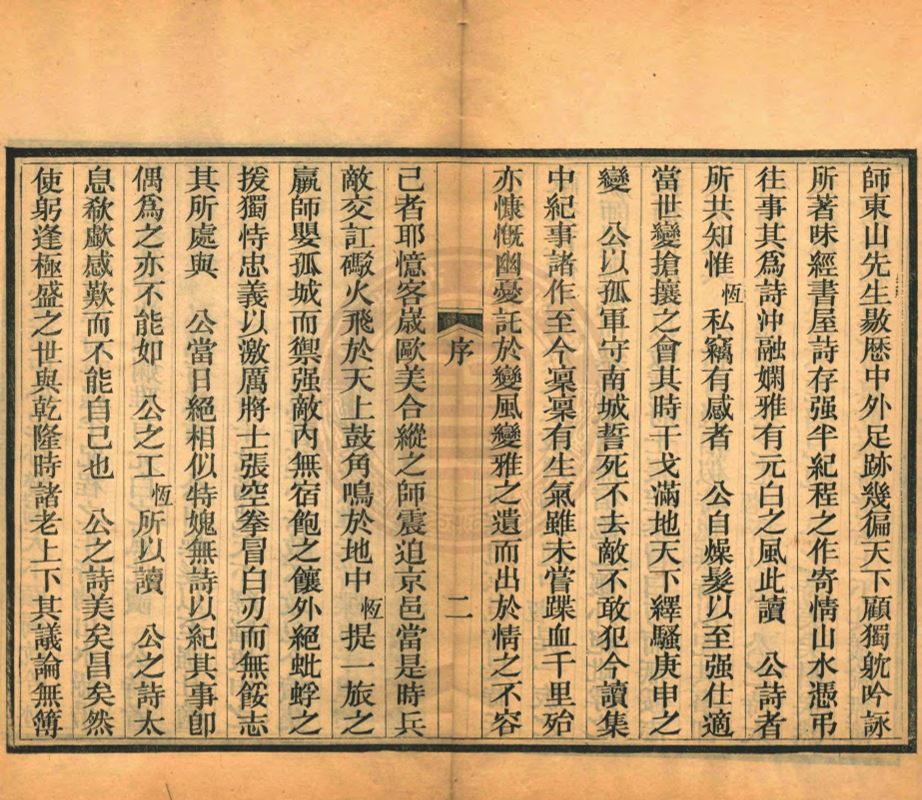 師東山先生敭歴中外足跡幾徧天下顧獨躭吟詠
所著味經書屋詩存强半紀程之作寄情山水憑弔
往事其爲詩沖融嫻雅有元白之風此讀　公詩者
所共知惟恆私竊有感者　公自燥髮以至强仕適
當世變搶攘之會其時干戈滿地天下繹騷庚申之
變　公以孤軍守南城誓死不去敵不敢犯今讀集
中紀事諸作至今凛凛有生氣雖未嘗蹀血千里殆
亦慷慨幽憂託於變風變雅之遺而出於情之不容
序
二
己者耶憶客歲歐美合縱之師震迫京邑當是時兵
敵交訌礮火飛於天上鼓角鳴於地中恆提一旅之
羸師嬰孤城而禦强敵內無宿飽之饟外絕蚍蜉之
援獨恃忠義以激厲將士張空拳冒白刃而無餒志
其所處與　公當日絕相似特媿無詩以紀其事卽
偶爲之亦不能如　公之工恆所以讀　公之詩太
息欷歔感歎而不能自己也　公之詩美矣昌矣然
使躬逢極盛之世與乾隆時諸老上下其議論無簿